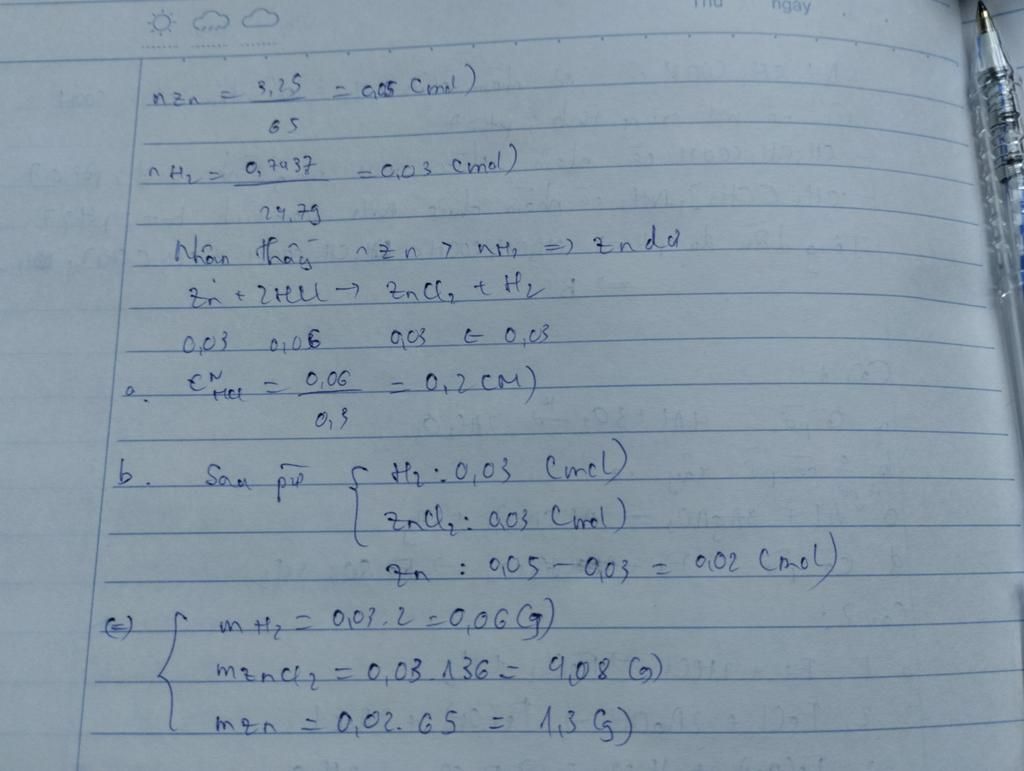 Thứ ngày
nZn = 3,25 / 65 = 0,05 (mol)
nH₂ = 0,7437 / 24,79 = 0,03 (mol)
Nhân thấy nZn > nH₂ => Zn dư
Zn + 2HCl → ZnCl₂ + H₂
0,03 0,06 0,03 ← 0,03
a. CᴹHCl = 0,06 / 0,3 = 0,2 (M)
b. Sau pư { H₂ : 0,03 (mol)
ZnCl₂ : 0,03 (mol)
Zn : 0,05 - 0,03 = 0,02 (mol)
(=) { mH₂ = 0,03.2 = 0,06 (g)
mZnCl₂ = 0,03.136 = 4,08 (g)
mZn = 0,02.65 = 1,3 (g)